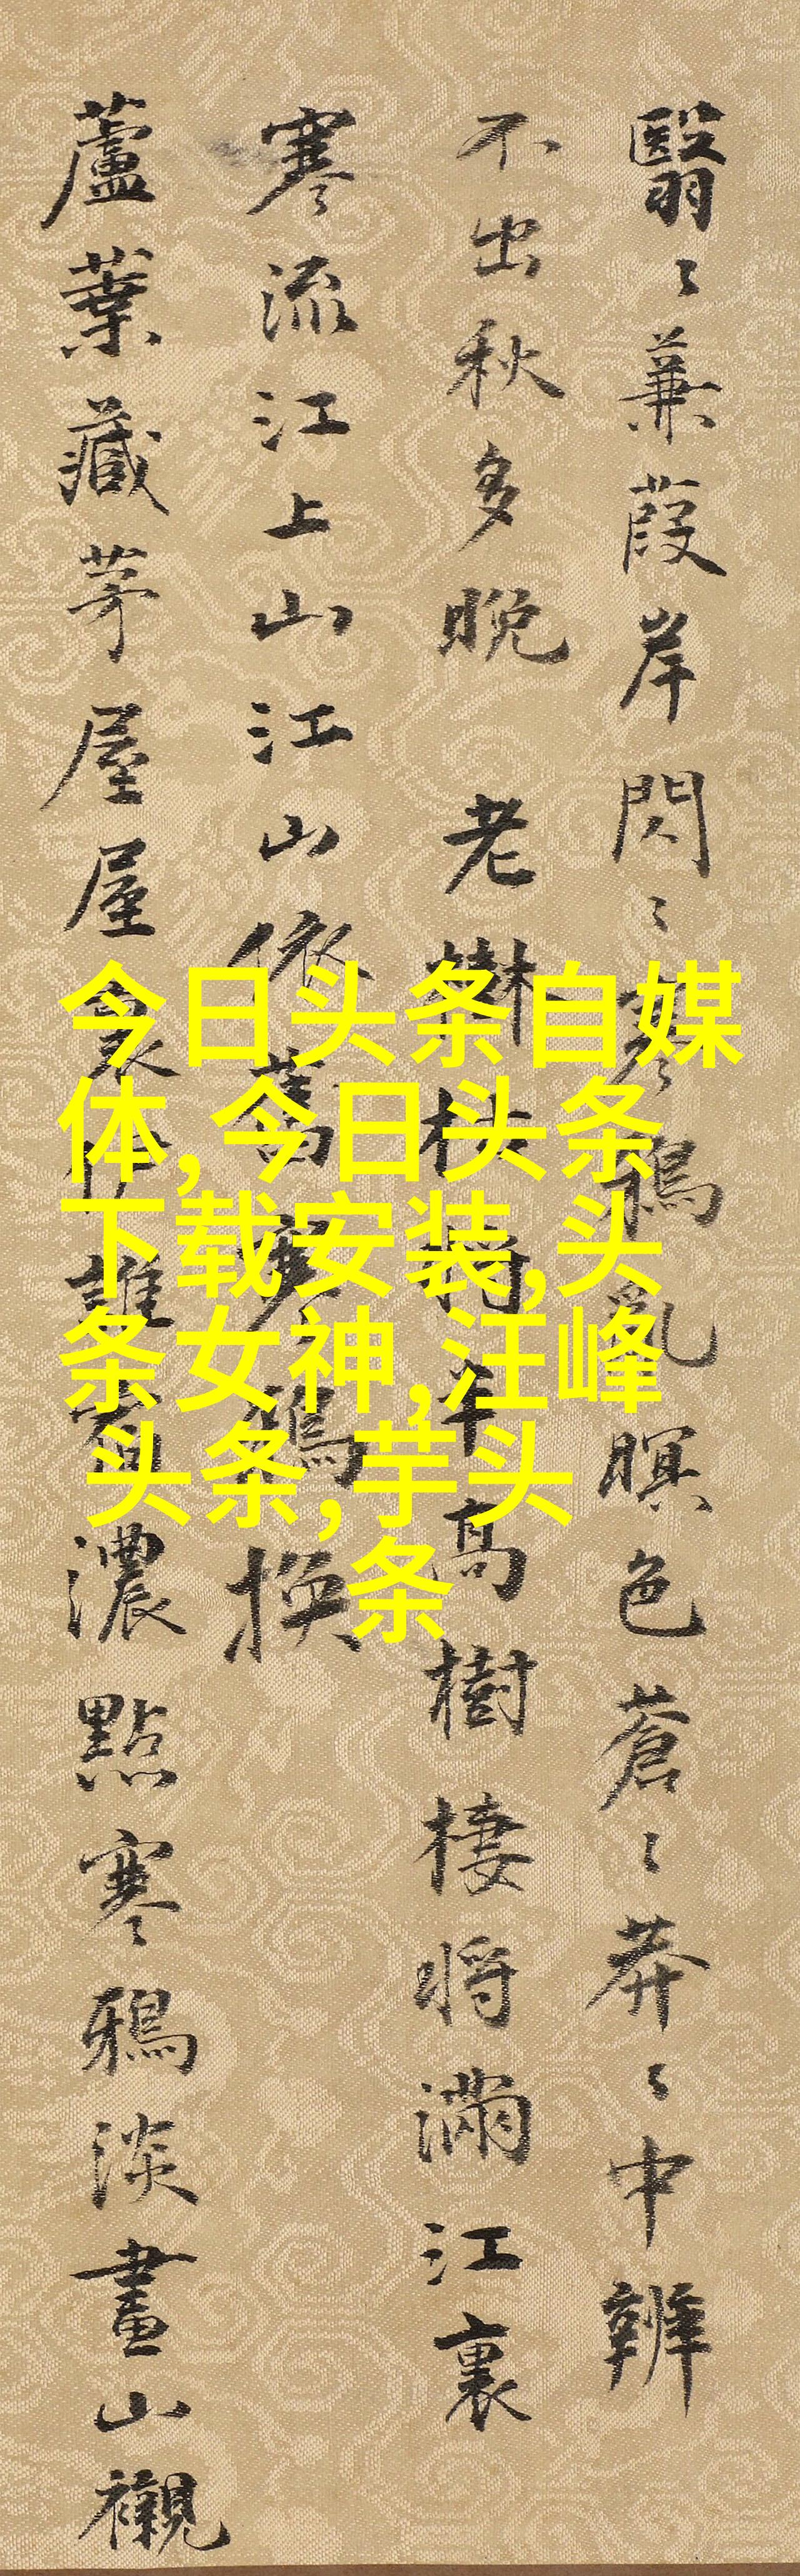 翳〻蒹葭岸閃〻寒鴉亂暝色蒼〻莽〻中辨
不出秋多晚 老樹枝將半高樹棲將滿江裏
寒流江上山江山依舊寒鴉換
蘆葉藏茅屋屋裏伊誰 濃點寒鴉淡畫山襯
今日头条自媒
体,今日头条
下载安装,头
条女神,汪峰
头条,芋头
条